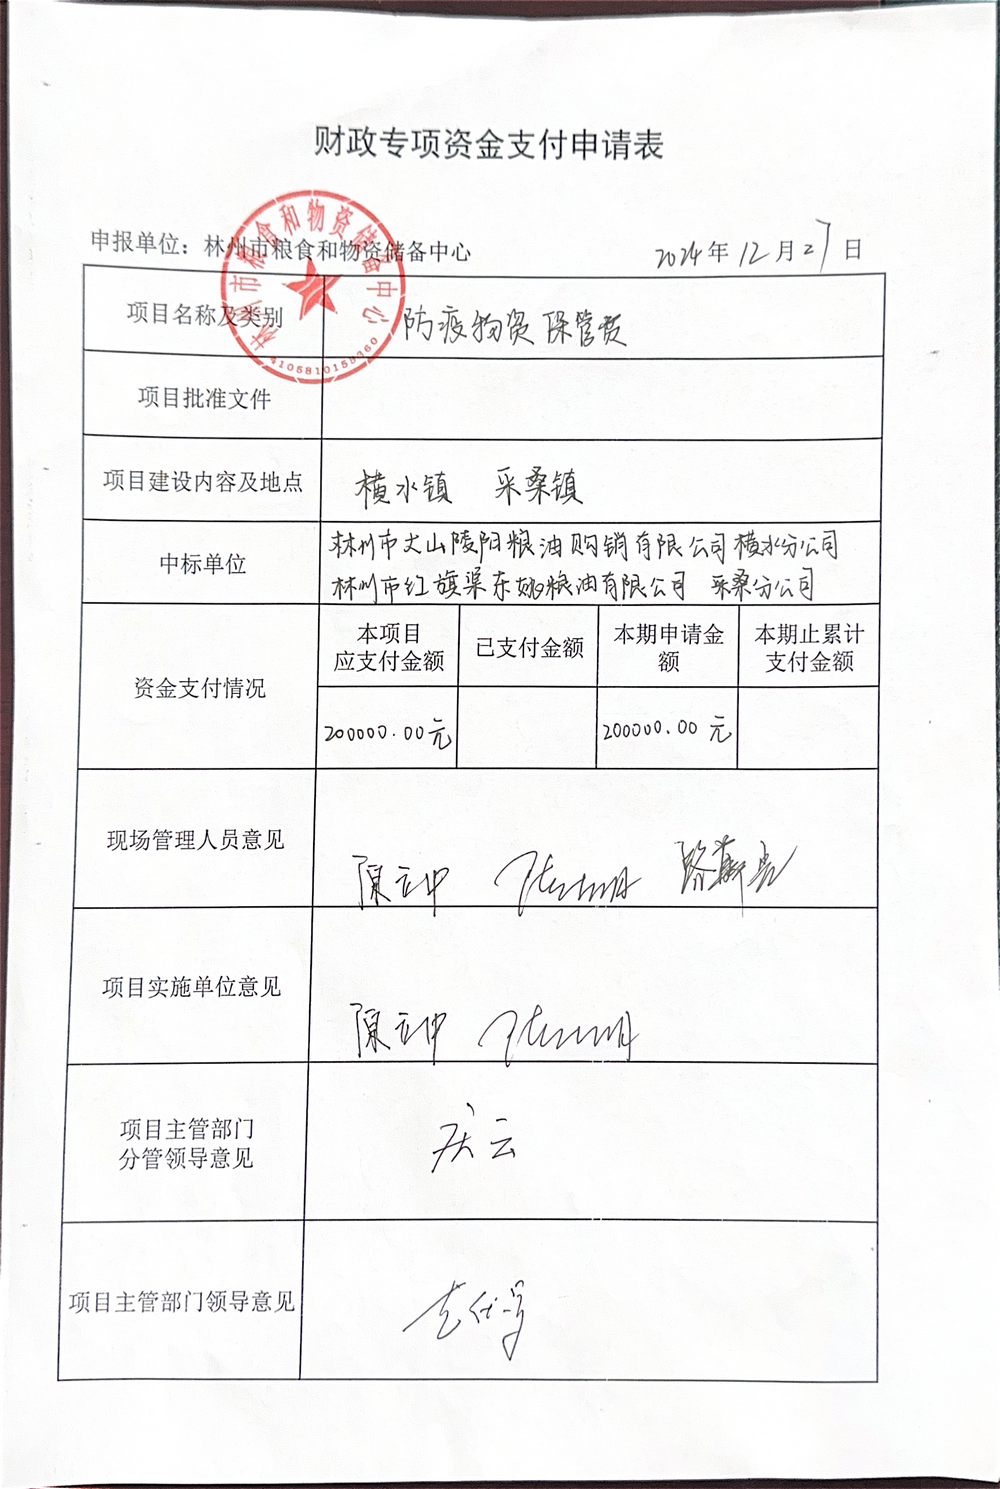 财政专项资金支付申请表
林州市粮食和物资储备中心
4105810158360
申报单位：林州市粮食和物资储备中心 2024年12月27日
项目名称及类别 防疫物资保管费
项目批准文件
项目建设内容及地点 横水镇 采桑镇
中标单位
林州市丈山陵阳粮油购销有限公司横水分公司
林州市红旗渠东姚粮油有限公司 采桑分公司
资金支付情况
本项目
应支付金额
已支付金额
本期申请金
额
本期止累计
支付金额
200000.00元 200000.00元
现场管理人员意见
项目实施单位意见
项目主管部门
分管领导意见
庆云
项目主管部门领导意见